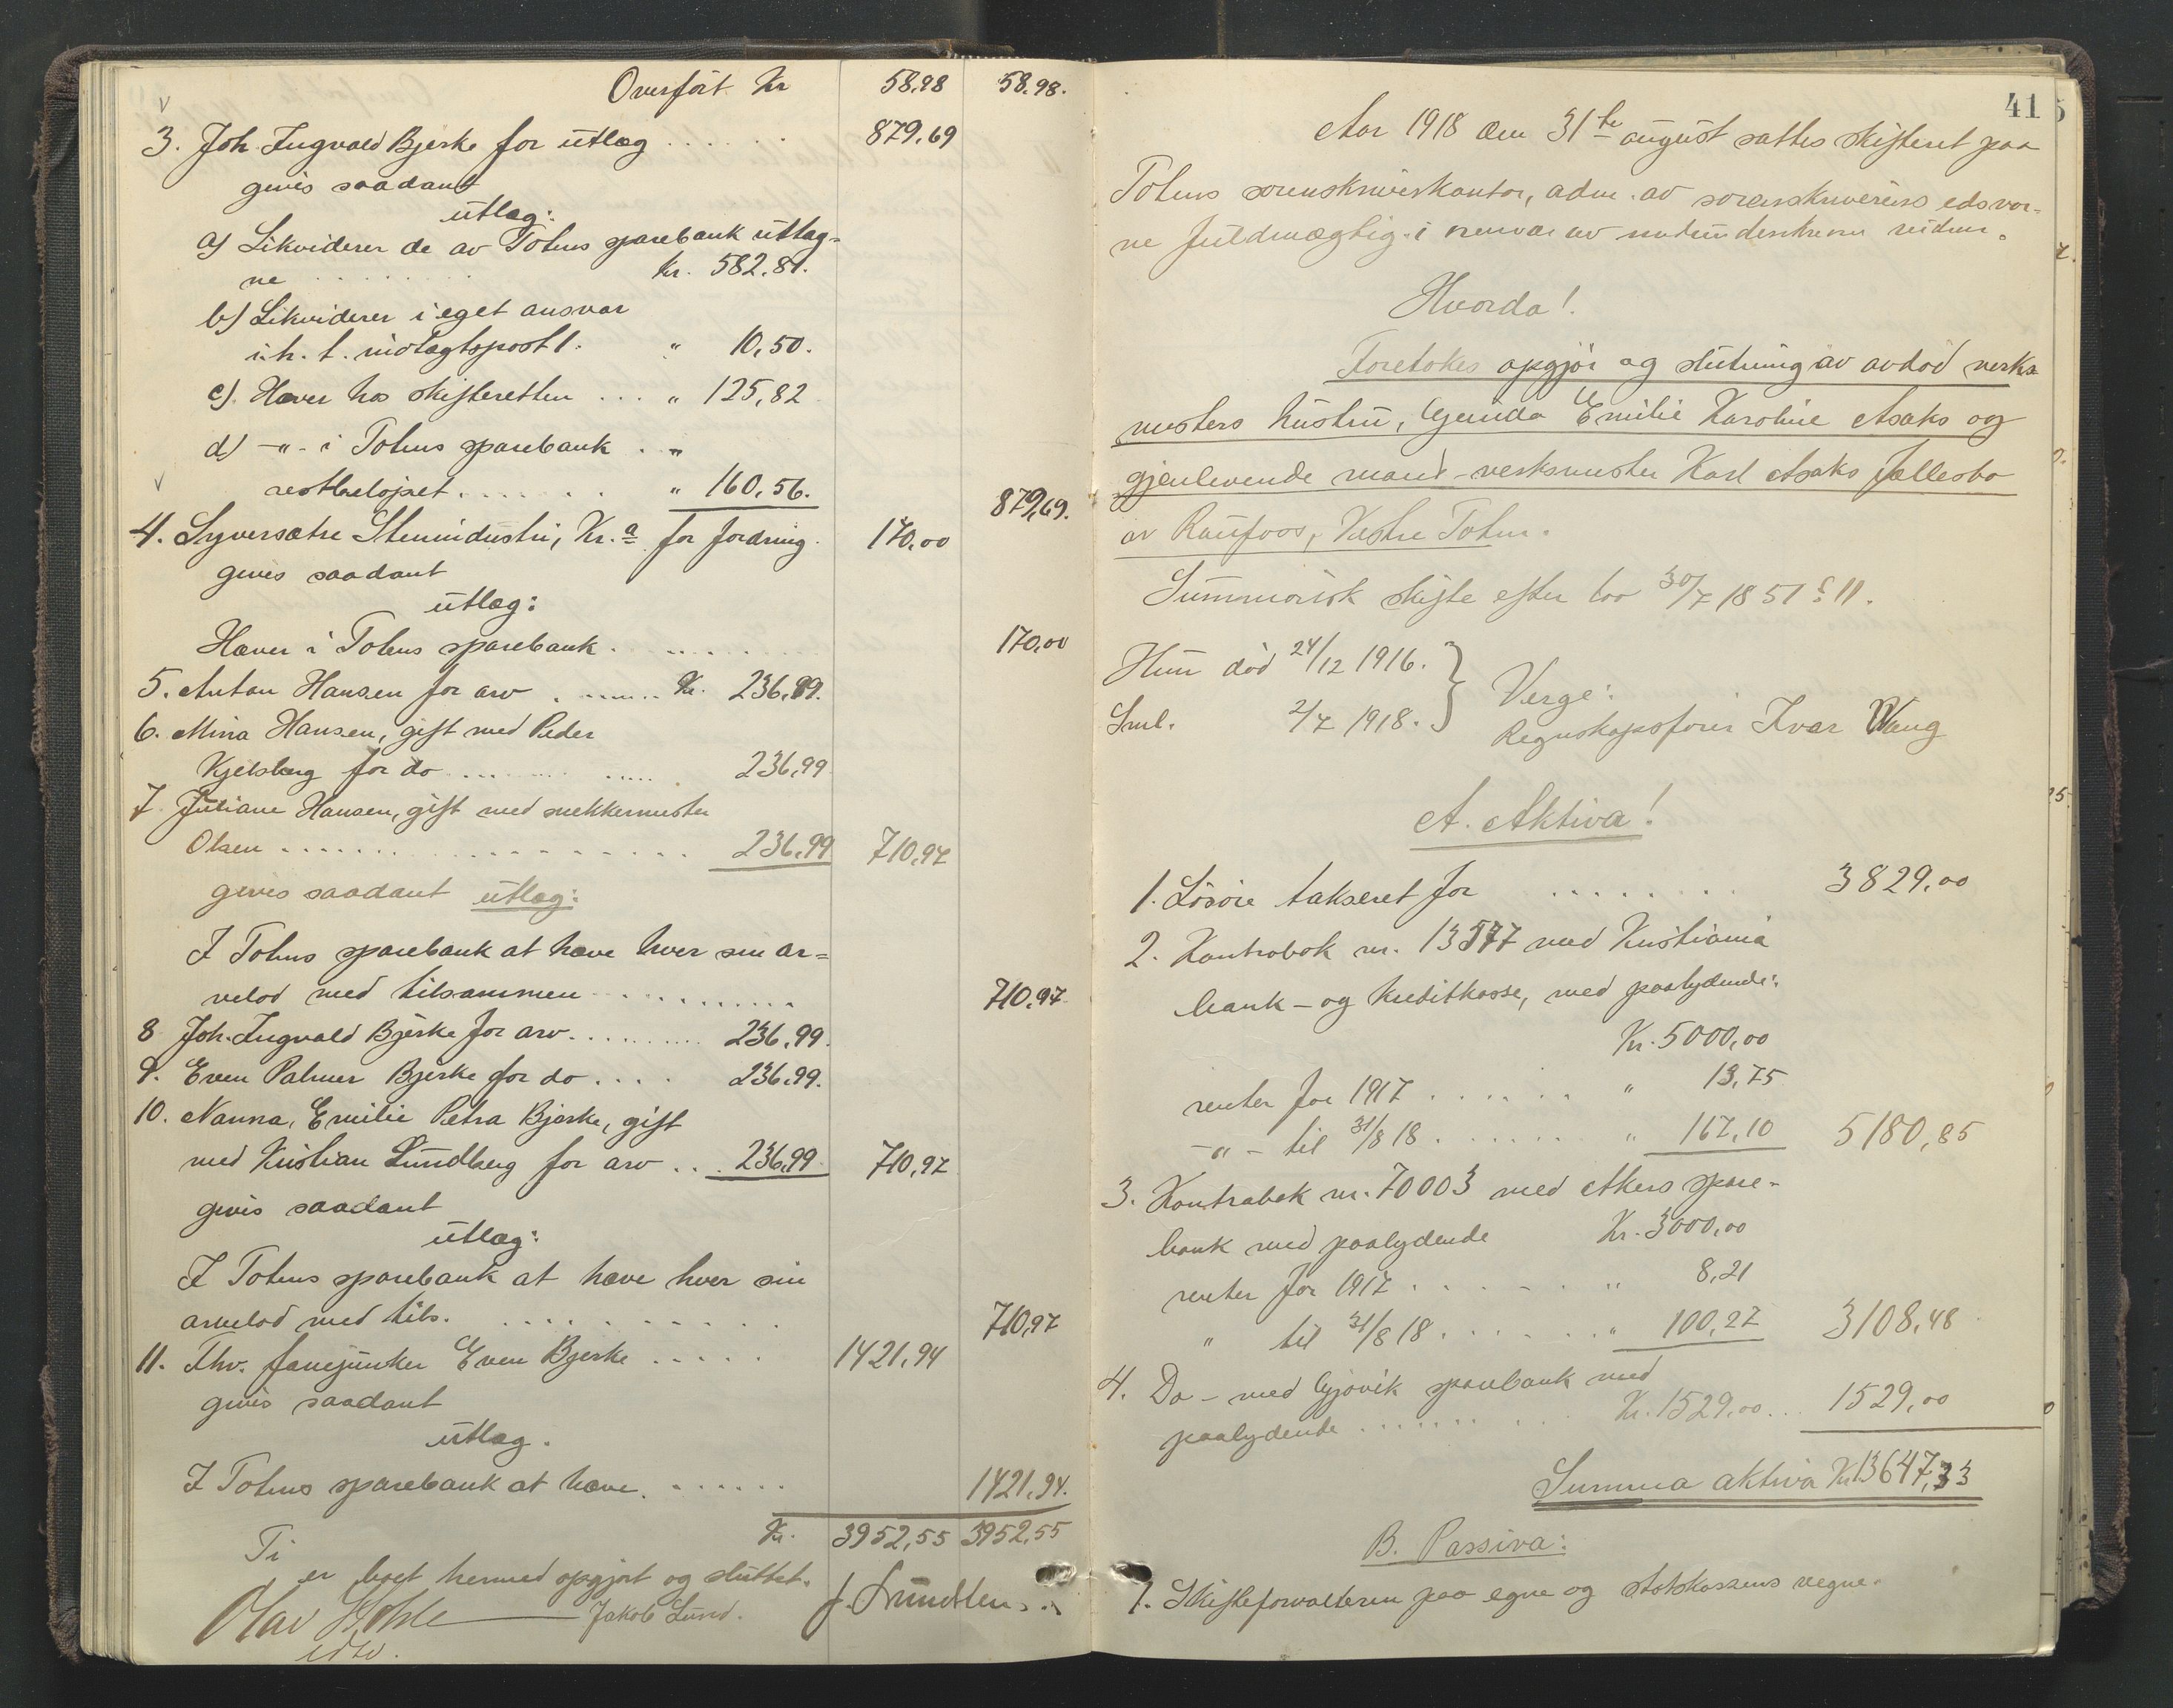 Overført Kr 58,98 58.98.
3. Joh. Ingvald Bjerke for utlæg . . . . . . 879,69
gives saadant
utlæg:
a) Likviderer de av Totens sparebank uttag-
ne . . . . . . . . Kr. 582,81.
b) Likviderer i eget ansvar
i.h.t. indtægtspost 1. " 10,50.
c) Hæver hos skifteretten . . . " 125,82
d) -"- i Totens sparebank . "
restbeløpet . . . . . . . " 160,56. 879,69.
4. Syversætre Stenindustri, Kr.a for fordring. 170,00
gives saadant
utlæg:
Hæver i Totens sparebank . . . . . . 170,00
5. Anton Hansen for arv . . . . . . Kr. 236,99.
6. Mina Hansen, gift med Peder
Kjelsberg for do . . . . . . . . . . 236,99
7. Juliane Hansen, gift med snekkermester
Olsen . . . . . . . . . . . . . . . . . 236,99 710,97
gives saadant utlæg:
I Totens sparebank at hæve hver sin ar-
velod med tilsammen . . . . . . . . . . 710,97
8 Joh. Ingvald Bjerke for arv . . . . . . . . . 236,99.
9. Even Palmer Bjerke for do . . . . 236,99.
10. Nanna, Emilie Petra Bjerke, gift
med Kristian Lundberg for arv . . . 236,99 710,97
gives saadant
utlæg:
I Totens sparebank at hæve hver sin
arvelod med tils. . . . . . . . . . . . 710,97
11. Fhv. fanejunker Even Bjerke . . . . . 1421,94
gives saadant
utlæg.
I Totens sparebank at hæve . . . . . . . 1421,94.
Kr. 3952,55 3952,55
Ti
er boet hermed opgjort og sluttet.
Olav Jakob Lund.
edsv.
41
Aar 1918 den 31te august sattes skifteret paa
Totens sorenskriverkontor, adm. av sorenskriverens edsvor-
ne fuldmægtig i nærvær av medunderskrevne vidner.
Hvorda!
Foretokes opgjør og slutning av avdød verks-
mesters hustru, Gunda Emilie Karoline Asaks og
gjenlevende mand - verksmester Karl Asaks fællesbo
av Raufoss, Vestre Toten.
Summarisk skifte efter lov 30/7 1851 § 11.
Hun død 24/12 1916. } Verge:
Sml. 2/7 1918. } Regnskapsfører Ivar Waug
A. Aktiva!
1. Løsøre takseret for . . . . . . . . 3829,00
2. Kontrabok nr. 13577 med Kristiania
bank- og Kreditkasse, med paalydende:
Kr. 5000,00
renter for 1917 . . . . . . " 13,75
-"- til 31/8 18 . . . . . . . " 167,10 5180,85
3. Kontrabok nr. 70003 med Akers spare-
bank med paalydende Kr. 3000,00
renter for 1917 . . . . . . " 8,21
" til 31/8 18 . . . . . . " 100,27 3108,48
4. Do - med Gjøvik sparebank med
paalydende . . . . . . . . . Kr. 1529,00 . . . 1529,00
Summa aktiva Kr 13647,33
B. Passiva:
1. Skifteforvalteren paa egne og statskassens vegne.